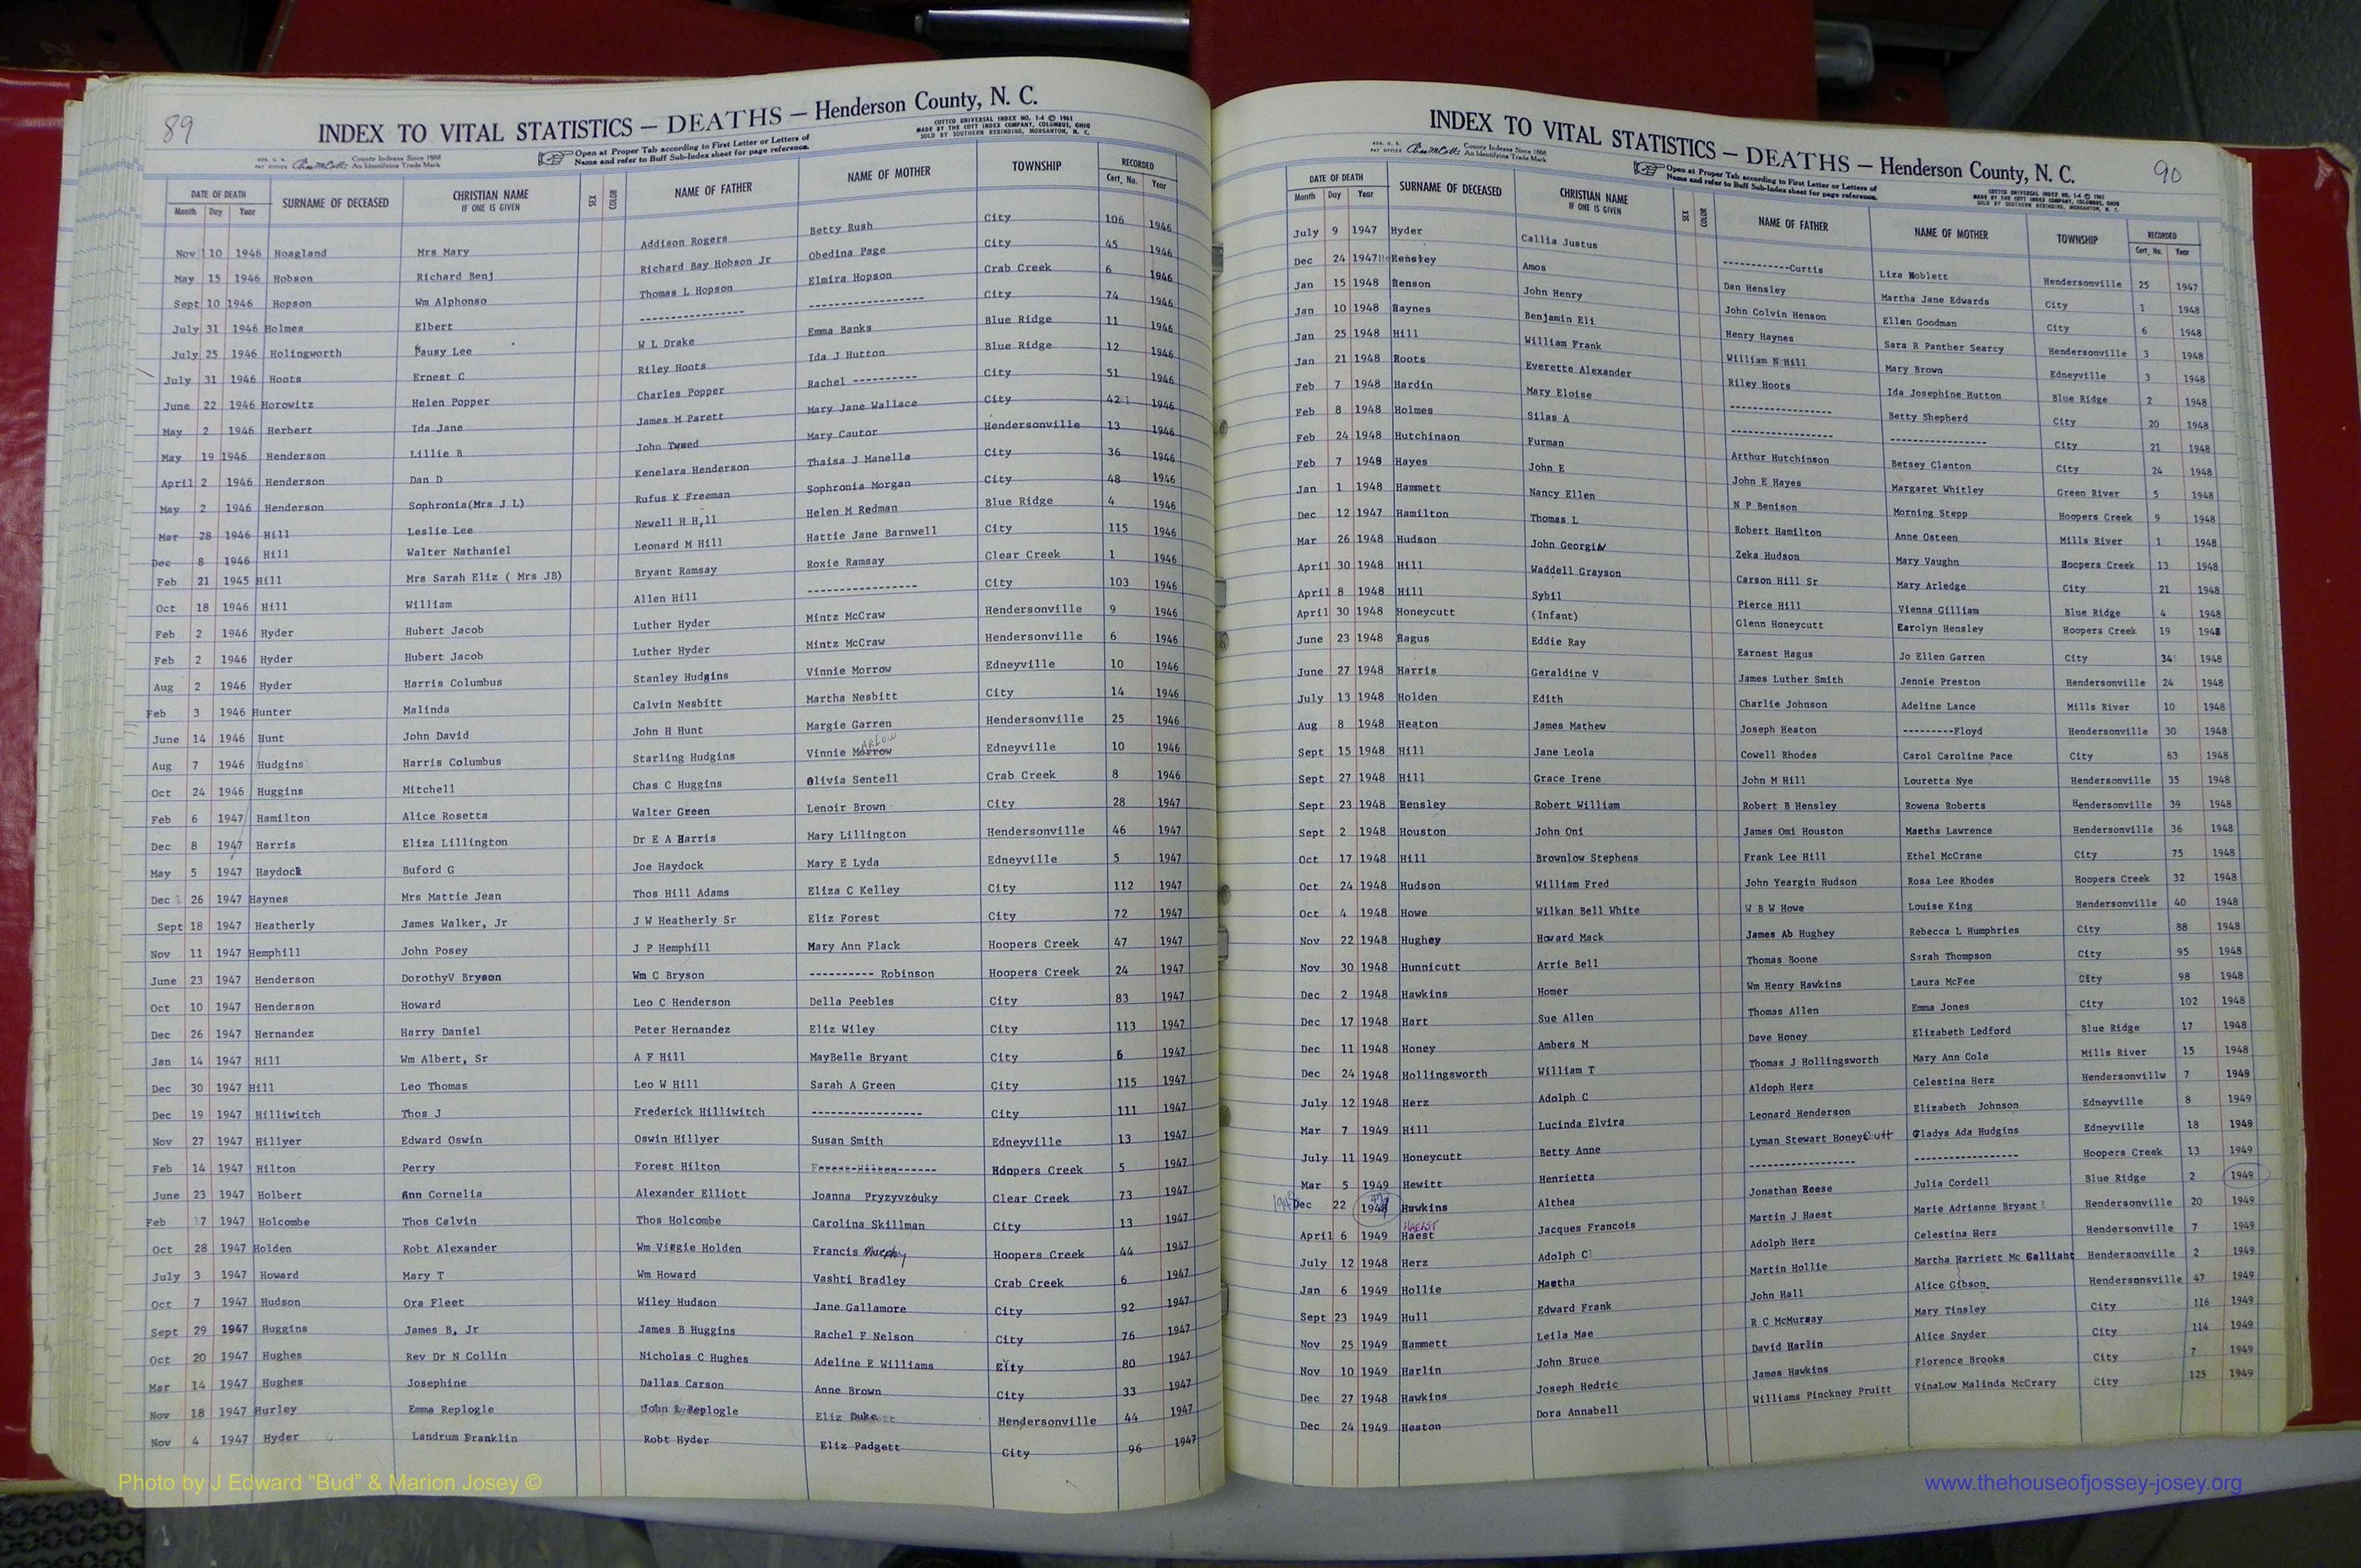 89
INDEX TO VITAL STATISTICS — DEATHS — Henderson County, N. C.
County Indexes Since 1888
An Identifying Trade Mark
Open at Proper Tab according to First Letter or Letters of
Name and refer to Buff Sub-Index sheet for page reference.
COTTCO UNIVERSAL INDEX NO. 1-4 © 1961
MADE BY THE COTT INDEX COMPANY, COLUMBUS, OHIO
SOLD BY SOUTHERN REBINDING, MORGANTON, N. C.
DATE OF DEATH SURNAME OF DECEASED CHRISTIAN NAME IF ONE IS GIVEN SEX COLOR NAME OF FATHER NAME OF MOTHER TOWNSHIP RECORDED
Month Day Year Cert. No. Year
Nov 10 1946 Hoagland Mrs Mary Addison Rogers Betty Rush City 106 1946
May 15 1946 Hobson Richard Benj Richard Bay Hobson Jr Obedina Page City 45 1946
Sept 10 1946 Hopson Wm Alphonso Thomas L Hopson Elmira Hopson Crab Creek 6 1946
July 31 1946 Holmes Elbert ---------------- ----------------- City 74 1946
July 25 1946 Holingworth Pausy Lee W L Drake Emma Banks Blue Ridge 11 1946
July 31 1946 Hoots Ernest C Riley Hoots Ida J Hutton Blue Ridge 12 1946
June 22 1946 Horowitz Helen Popper Charles Popper Rachel ---------- City 51 1946
May 2 1946 Herbert Ida Jane James M Parett Mary Jane Wallace City 42 1946
May 19 1946 Henderson Lillie B John Tweed Mary Cautor Hendersonville 13 1946
April 2 1946 Henderson Dan D Kenelara Henderson Thaisa J Manelle City 36 1946
May 2 1946 Henderson Sophronia(Mrs J L) Rufus K Freeman Sophronia Morgan City 48 1946
Mar 28 1946 Hill Leslie Lee Newell H H,ll Helen M Redman Blue Ridge 4 1946
Dec 8 1946 Hill Walter Nathaniel Leonard M Hill Hattie Jane Barnwell City 115 1946
Feb 21 1945 Hill Mrs Sarah Eliz ( Mrs JB) Bryant Ramsay Roxie Ramsay Clear Creek 1 1946
Oct 18 1946 Hill William Allen Hill ----------------- City 103 1946
Feb 2 1946 Hyder Hubert Jacob Luther Hyder Mintz McCraw Hendersonville 9 1946
Feb 2 1946 Hyder Hubert Jacob Luther Hyder Mintz McCraw Hendersonville 6 1946
Aug 2 1946 Hyder Harris Columbus Stanley Hudgins Vinnie Morrow Edneyville 10 1946
Feb 3 1946 Hunter Malinda Calvin Nesbitt Martha Nesbitt City 14 1946
June 14 1946 Hunt John David John H Hunt Margie Garren Hendersonville 25 1946
Aug 7 1946 Hudgins Harris Columbus Starling Hudgins Vinnie Morrow ARLOW Edneyville 10 1946
Oct 24 1946 Huggins Mitchell Chas C Huggins Olivia Sentell Crab Creek 8 1946
Feb 6 1947 Hamilton Alice Rosetta Walter Green Lenoir Brown City 28 1947
Dec 8 1947 Harris Eliza Lillington Dr E A Harris Mary Lillington Hendersonville 46 1947
May 5 1947 Haydock Buford G Joe Haydock Mary E Lyda Edneyville 5 1947
Dec 26 1947 Haynes Mrs Mattie Jean Thos Hill Adams Eliza C Kelley City 112 1947
Sept 18 1947 Heatherly James Walker, Jr J W Heatherly Sr Eliz Forest City 72 1947
Nov 11 1947 Hemphill John Posey J P Hemphill Mary Ann Flack Hoopers Creek 47 1947
June 23 1947 Henderson DorothyV Bryson Wm C Bryson ---------- Robinson Hoopers Creek 24 1947
Oct 10 1947 Henderson Howard Leo C Henderson Della Peebles City 83 1947
Dec 26 1947 Hernandez Harry Daniel Peter Hernandez Eliz Wiley City 113 1947
Jan 14 1947 Hill Wm Albert, Sr A F Hill MayBelle Bryant City 6 1947
Dec 30 1947 Hill Leo Thomas Leo W Hill Sarah A Green City 115 1947
Dec 19 1947 Hilliwitch Thos J Frederick Hilliwitch ----------------- City 111 1947
Nov 27 1947 Hillyer Edward Oswin Oswin Hillyer Susan Smith Edneyville 13 1947
Feb 14 1947 Hilton Perry Forest Hilton Forest Hilton------ Hoopers Creek 5 1947
June 23 1947 Holbert Ann Cornelia Alexander Elliott Joanna Pryzyvzouky Clear Creek 73 1947
Feb 17 1947 Holcombe Thos Calvin Thos Holcombe Carolina Skillman City 13 1947
Oct 28 1947 Holden Robt Alexander Wm Virgie Holden Francis Murphy Hoopers Creek 44 1947
July 3 1947 Howard Mary T Wm Howard Vashti Bradley Crab Creek 6 1947
Oct 7 1947 Hudson Ora Fleet Wiley Hudson Jane Gallamore City 92 1947
Sept 29 1947 Huggins James B, Jr James B Huggins Rachel F Nelson City 76 1947
Oct 20 1947 Hughes Rev Dr N Collin Nicholas C Hughes Adeline E Williams City 80 1947
Mar 14 1947 Hughes Josephine Dallas Carson Anne Brown City 33 1947
Nov 18 1947 Hurley Emma Replogle John L Replogle Eliz Duke Hendersonville 44 1947
Nov 4 1947 Hyder Landrum Franklin Robt Hyder Eliz Padgett City 96 1947
Photo by J Edward “Bud” & Marion Josey ©
90
INDEX TO VITAL STATISTICS — DEATHS — Henderson County, N. C.
County Indexes Since 1888
An Identifying Trade Mark
Open at Proper Tab according to First Letter or Letters of
Name and refer to Buff Sub-Index sheet for page reference.
COTTCO UNIVERSAL INDEX NO. 1-4 © 1961
MADE BY THE COTT INDEX COMPANY, COLUMBUS, OHIO
SOLD BY SOUTHERN REBINDING, MORGANTON, N. C.
DATE OF DEATH SURNAME OF DECEASED CHRISTIAN NAME IF ONE IS GIVEN SEX COLOR NAME OF FATHER NAME OF MOTHER TOWNSHIP RECORDED
Month Day Year Cert. No. Year
July 9 1947 Hyder Callia Justus -----------Curtis Liza Noblett Hendersonville 25 1947
Dec 24 1947 Hensley Amos Dan Hensley Martha Jane Edwards City 1 1948
Jan 15 1948 Henson John Henry John Colvin Henson Ellen Goodman City 6 1948
Jan 10 1948 Haynes Benjamin Eli Henry Haynes Sara R Panther Searcy Hendersonville 3 1948
Jan 25 1948 Hill William Frank William N Hill Mary Brown Edneyville 3 1948
Jan 21 1948 Hoots Everette Alexander Riley Hoots Ida Josephine Hutton Blue Ridge 2 1948
Feb 7 1948 Hardin Mary Eloise ---------------- Betty Shepherd City 20 1948
Feb 8 1948 Holmes Silas A ---------------- ---------------- City 21 1948
Feb 24 1948 Hutchinson Furman Arthur Hutchinson Betsey Clanton City 24 1948
Feb 7 1948 Hayes John E John E Hayes Margaret Whitley Green River 5 1948
Jan 1 1948 Hammett Nancy Ellen N P Benison Morning Stepp Hoopers Creek 9 1948
Dec 12 1947 Hamilton Thomas L Robert Hamilton Anne Osteen Mills River 1 1948
Mar 26 1948 Hudson John Georgia Zeka Hudson Mary Vaughn Hoopers Creek 13 1948
April 30 1948 Hill Waddell Grayson Carson Hill Sr Mary Arledge City 21 1948
April 8 1948 Hill Sybil Pierce Hill Vienna Gilliam Blue Ridge 4 1948
April 30 1948 Honeycutt (Infant) Glenn Honeycutt Carolyn Hensley Hoopers Creek 19 1948
June 23 1948 Hagus Eddie Ray Earnest Hagus Jo Ellen Garren City 34 1948
June 27 1948 Harris Geraldine V James Luther Smith Jennie Preston Hendersonville 24 1948
July 13 1948 Holden Edith Charlie Johnson Adeline Lance Mills River 10 1948
Aug 8 1948 Heaton James Mathew Joseph Heaton ---------Floyd Hendersonville 30 1948
Sept 15 1948 Hill Jane Leola Cowell Rhodes Carol Caroline Pace City 63 1948
Sept 27 1948 Hill Grace Irene John M Hill Louretta Nye Hendersonville 35 1948
Sept 23 1948 Hensley Robert William Robert B Hensley Rowena Roberts Hendersonville 39 1948
Sept 2 1948 Houston John Oni James Omi Houston Maetha Lawrence Hendersonville 36 1948
Oct 17 1948 Hill Brownlow Stephens Frank Lee Hill Ethel McCrane City 75 1948
Oct 24 1948 Hudson William Fred John Yeargin Hudson Rosa Lee Rhodes Hoopers Creek 32 1948
Oct 4 1948 Howe Wilkan Bell White W B W Howe Louise King Hendersonville 40 1948
Nov 22 1948 Hughey Howard Mack James Ab Hughey Rebecca L Humphries City 88 1948
Nov 30 1948 Hunnicutt Arrie Bell Thomas Boone Sarah Thompson City 95 1948
Dec 2 1948 Hawkins Homer Wm Henry Hawkins Laura McFee City 98 1948
Dec 17 1948 Hart Sue Allen Thomas Allen Emma Jones City 102 1948
Dec 11 1948 Honey Ambers M Dave Honey Elizabeth Ledford Blue Ridge 17 1948
Dec 24 1948 Hollingsworth William T Thomas J Hollingsworth Mary Ann Cole Mills River 15 1948
July 12 1948 Herz Adolph C Aldoph Herz Celestina Herz Hendersonvillw 7 1949
Mar 7 1949 Hill Lucinda Elvira Leonard Henderson Elizabeth Johnson Edneyville 8 1949
July 11 1949 Honeycutt Betty Anne Lyman Stewart HoneyCutt Gladys Ada Hudgins Edneyville 18 1949
Mar 5 1949 Hewitt Henrietta ----------------- ----------------- Hoopers Creek 13 1949
Dec 22 1948 Hawkins Althea Jonathan Reese Julia Cordell Blue Ridge 2 1949
April 6 1949 HAEAST Haest Jacques Francois Martin J Haest Marie Adrianne Bryant Hendersonville 20 1949
July 12 1948 Herz Adolph C Adolph Herz Celestina Herz Hendersonville 7 1949
Jan 6 1949 Hollie Maetha Martin Hollie Martha Harriett Mc Galliaht Hendersonville 2 1949
Sept 23 1949 Hull Edward Frank John Hall Alice Gibson Hendersonsville 47 1949
Nov 25 1949 Hammett Leila Mae R C McMurray Mary Tinsley City 116 1949
Nov 10 1949 Harlin John Bruce David Harlin Alice Snyder City 114 1949
Dec 27 1948 Hawkins Joseph Hedric James Hawkins Florence Brooks City 7 1949
Dec 24 1949 Heaton Dora Annabell Williams Pinckney Pruitt VinaLow Malinda McCrary City 125 1949
www.thehouseofjossey-josey.org